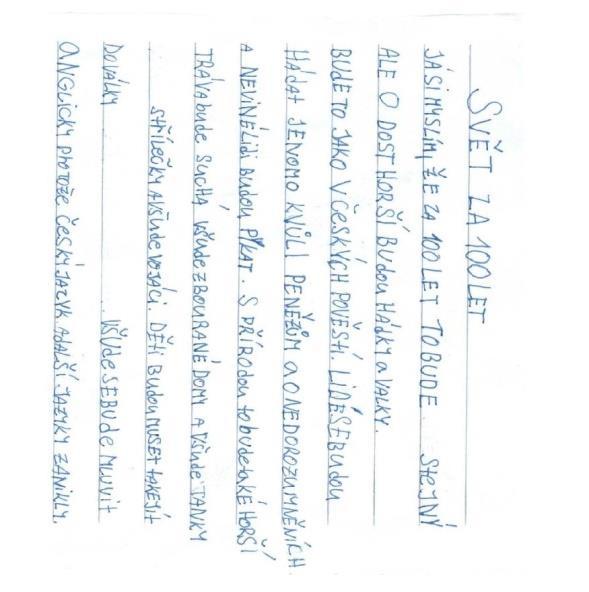 SVĚT ZA 100 LET
JÁ SI MYSLÍM, ŽE ZA 100 LET TO BUDE STEJNÝ
ALE O DOST HORŠÍ BUDOU HÁDKY A VALKY.
BUDE TO JAKO V ČESKÝCH POVĚSTÍ. LIDÉ SE BUDOU
HÁDAT JENOMO KVŮLI PENĚZŮM A O NEDOROZUMNĚNÍCH
A NEVINĚ LIDI BUDOU PYKAT. S PŘÍRODOU TO BUDE TAKÉ HORŠÍ
TRÁVA BUDE SUCHÁ, VŠUDE ZBOURANÉ DOMY A VŠUDE TANKY
STŘÍLEČKY A VŠUDE VOJÁCI. DĚTI BUDOU MUSET TAKE JÍT
DO VÁLKY VŠUDE SE BUDE MLUVIT
ANGLICKY PROTOŽE ČESKÝ JAZYK A DALŠÍ JAZYKY ZANIKLY.